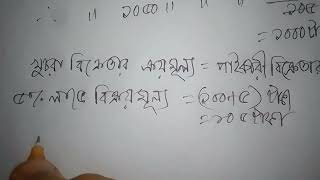 ∴ " " ১০৫০ " " ১০৫
= ১০০০ টাকা
খুচরা বিক্রেতার ক্রয়মূল্য = পাইকারী বিক্রেতার
৫% লাভে বিক্রয়মূল্য = (১০০+৫) টাকা
= ১০৫ টাকা